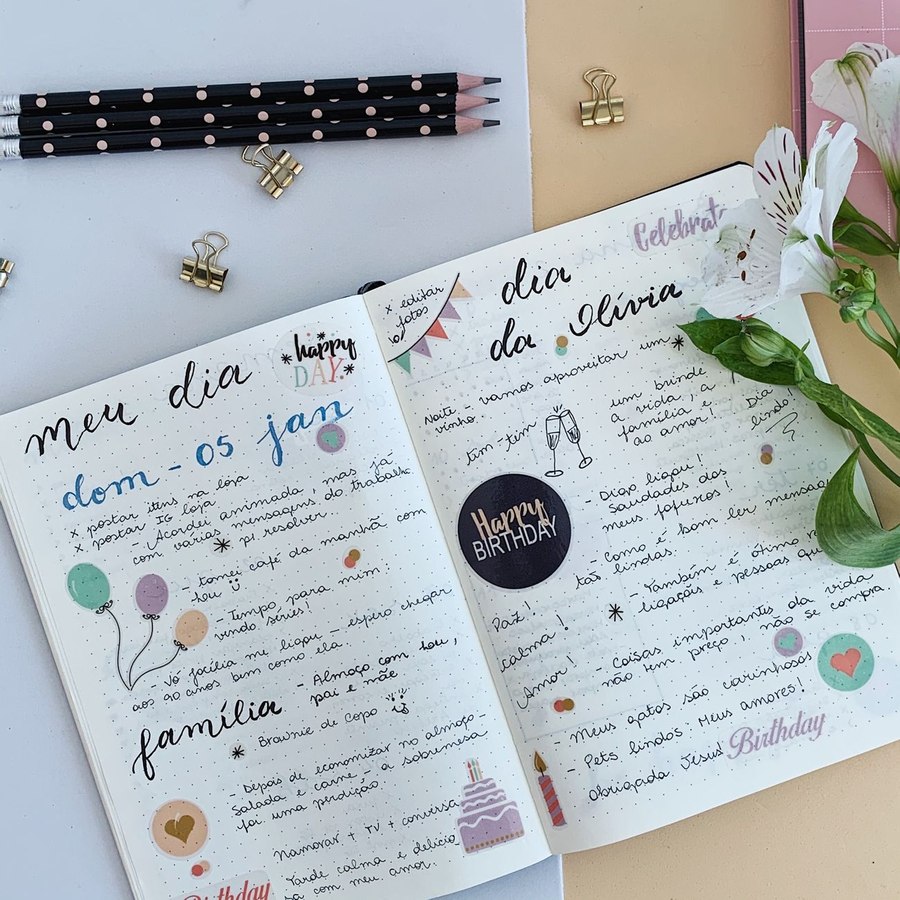 meu dia
happy
DAY.
dom - 05 jan
x postar itens na loja
x postar IG loja
- Acordei animada, mas já
com várias mensagens do trabalho
p/ resolver...
- tomei café da manhã com
lou
- Tempo para mim:
vendo séries!
- Vó Jocília me ligou - espero chegar
aos 90 anos bem como ela.
família - Almoço com lou,
pai e mãe
Brownie de Copo
- Depois de economizar no almoço -
salada e carne - a sobremesa
foi uma perdição.
Namorar + TV + conversa
Tarde calma e delicio
sa com meu amor.
Birthday
x editar
fotos
Celebrat
dia
da Olívia
Noite - vamos aproveitar um
vinho.
tim-tim
um brinde
à vida, a
família e
ao amor!
Dia
lindo!
Happy
BIRTHDAY
- Digo ligou!
Saudades dos
meus
- Como é bom ler mensag
tão lindas.
- Também é ótimo
ligações e pessoas qu
Paz!
calma!
Amor!
- Coisas importantes da vida
não tem preço, não se compra.
- Meus gatos são carinhosos
- Pets lindos. Meus amores!
Obrigada Jesus!
Birthday